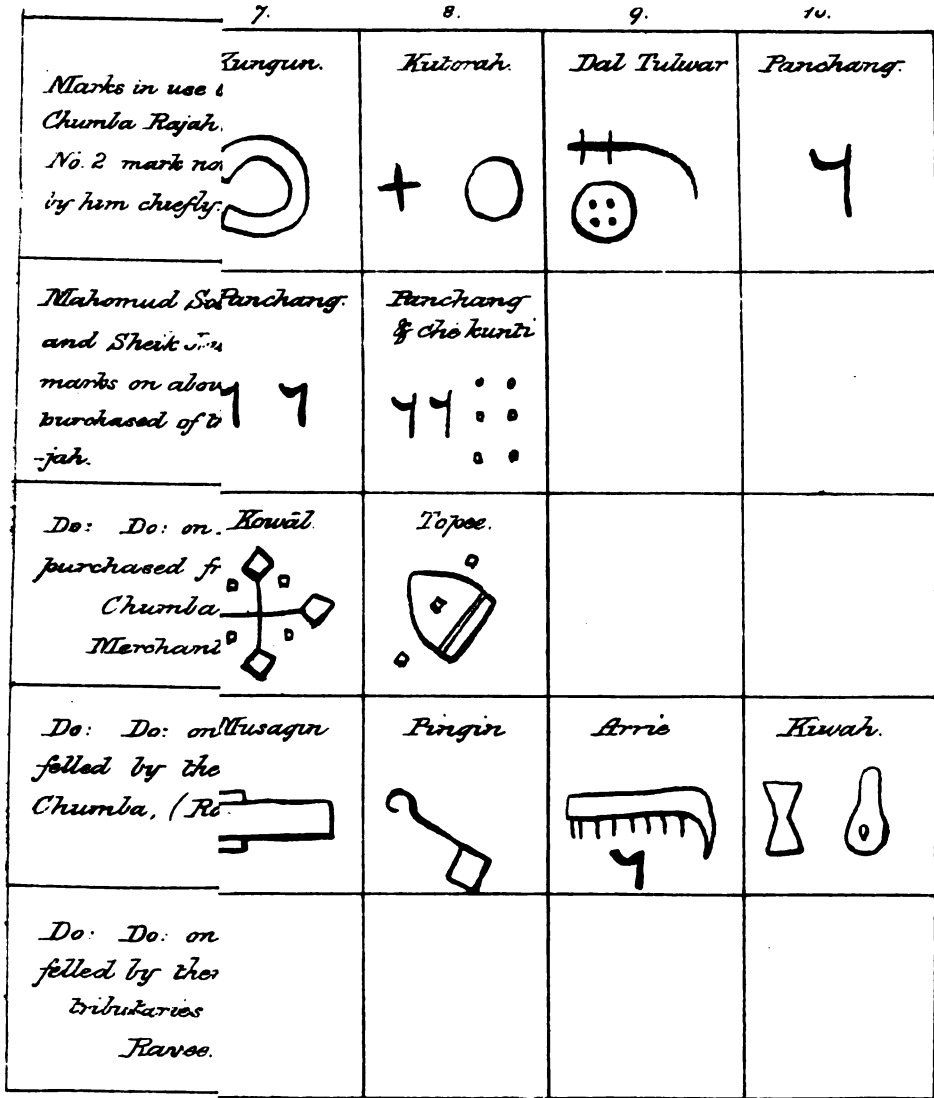 7. 8. 9. 10.
Marks in use
Chumba Rajah.
No. 2 mark
by him chiefly.
Kungun.
Kutorah.
Dal Tulwar
Panchang.
Mahomud
and Sheik
marks on
purchased of
-jah.
Panchang.
Panchang
& che kunti
Do: Do: on
purchased
Chumba
Merchant
Kowāl.
Topee.
Do: Do: on
felled by the
Chumba,
Musagin
Pingin
Arrie
Kuwah.
Do: Do: on
felled by
tributaries
Ravee.